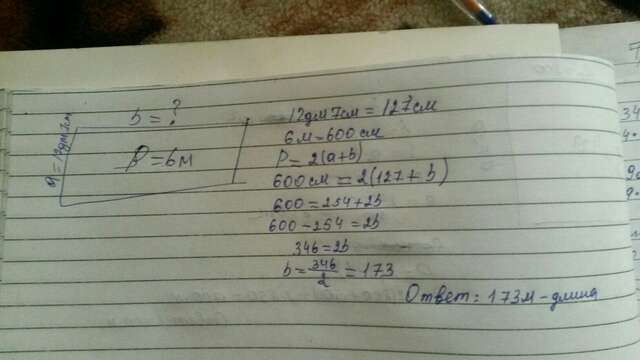 b = ?
a = 12дм7см
P = 6м
12дм 7см = 127см
6м = 600 см
P = 2(a+b)
600 см = 2(127 + b)
600 = 254 + 2b
600 - 254 = 2b
346 = 2b
b = 346/2 = 173
Ответ: 173м - длина